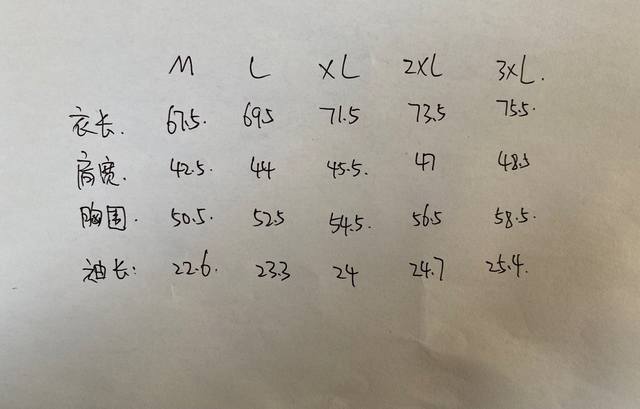 M L XL 2XL 3XL.
衣长. 67.5. 69.5 71.5 73.5 75.5.
肩宽. 42.5. 44 45.5. 47 48.5
胸围. 50.5. 52.5 54.5. 56.5 58.5.
袖长: 22.6. 23.3 24 24.7 25.4.